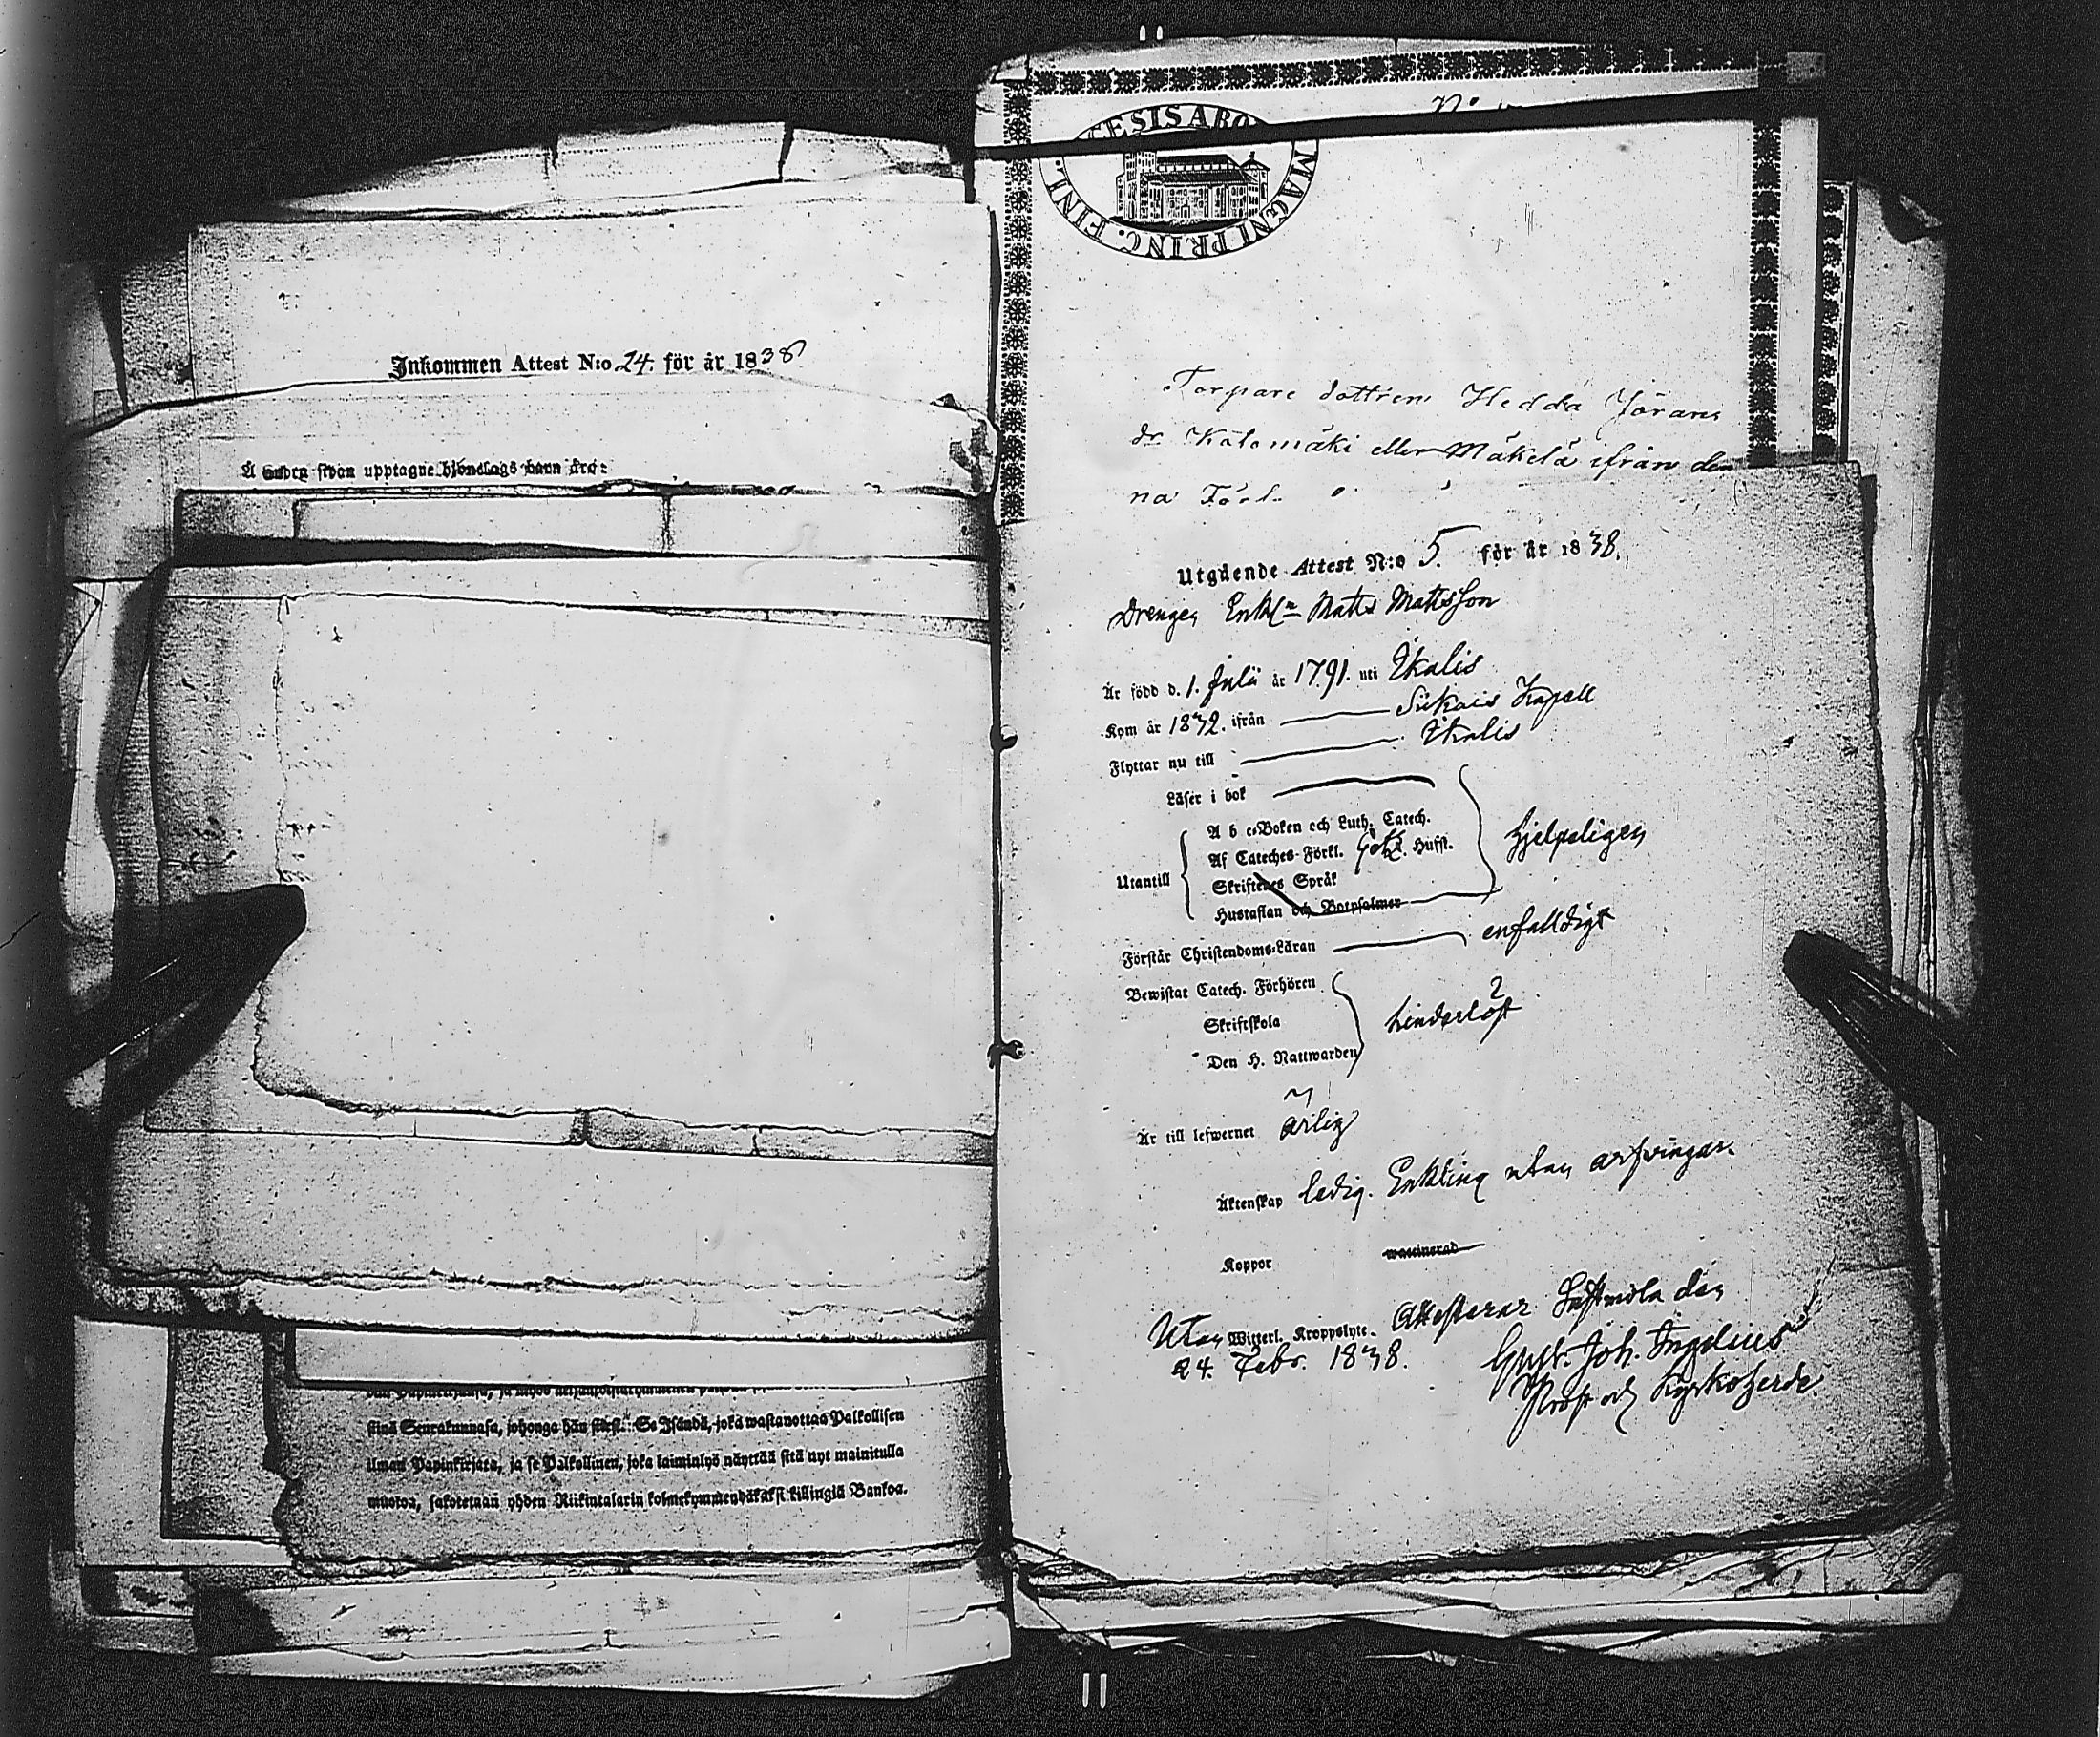 Inkommen Attest N:o 24. för år 1838
upptagne
stinä Seurakunnasa, johonga hän siirsi. Se Isändä, joka wastanottaa Palkollisen
ilman Papinkirjata, ja se Palkollinen, joka laiminlyö näyttää sitä nyt mainitulla
muotoa, sakotetaan yhden Riikintalarin kolmekymmendäkaksi killingiä Bankoa.
MAGNI PRINC. FINL.
Torpare dottren Hedda Jörans
dr Katomäki eller Mäkelä ifrån den
na
Utgående Attest N:o 5. för år 1838.
Drengen Enkl:n Matts Mattsson
Är född d. 1. Julii år 1791. uti Ikalis
Kom år 1832. ifrån Kapell
Flyttar nu till Ikalis
Läser i bok
A b c-Boken och Luth. Catech.
Af Cateches-Förkl. Hufst.
Utantill
Skriftenes Språk
Hustaflan och Botpsalmer
hjelpeligen
Förstår Christendoms-Läran enfalldigt
Bewistat Catech. Förhören
Skriftskola
Den H. Nattwarden
hinderlöst
Är till lefwernet ärlig
Äktenskap ledig. Enkling utan arfvingar.
Koppor waccinerad
Utan Witterl. Kroppslyte. Attesterar den
24. Febr. 1838. Joh. Ingelius
Prost och Kyrkoherde